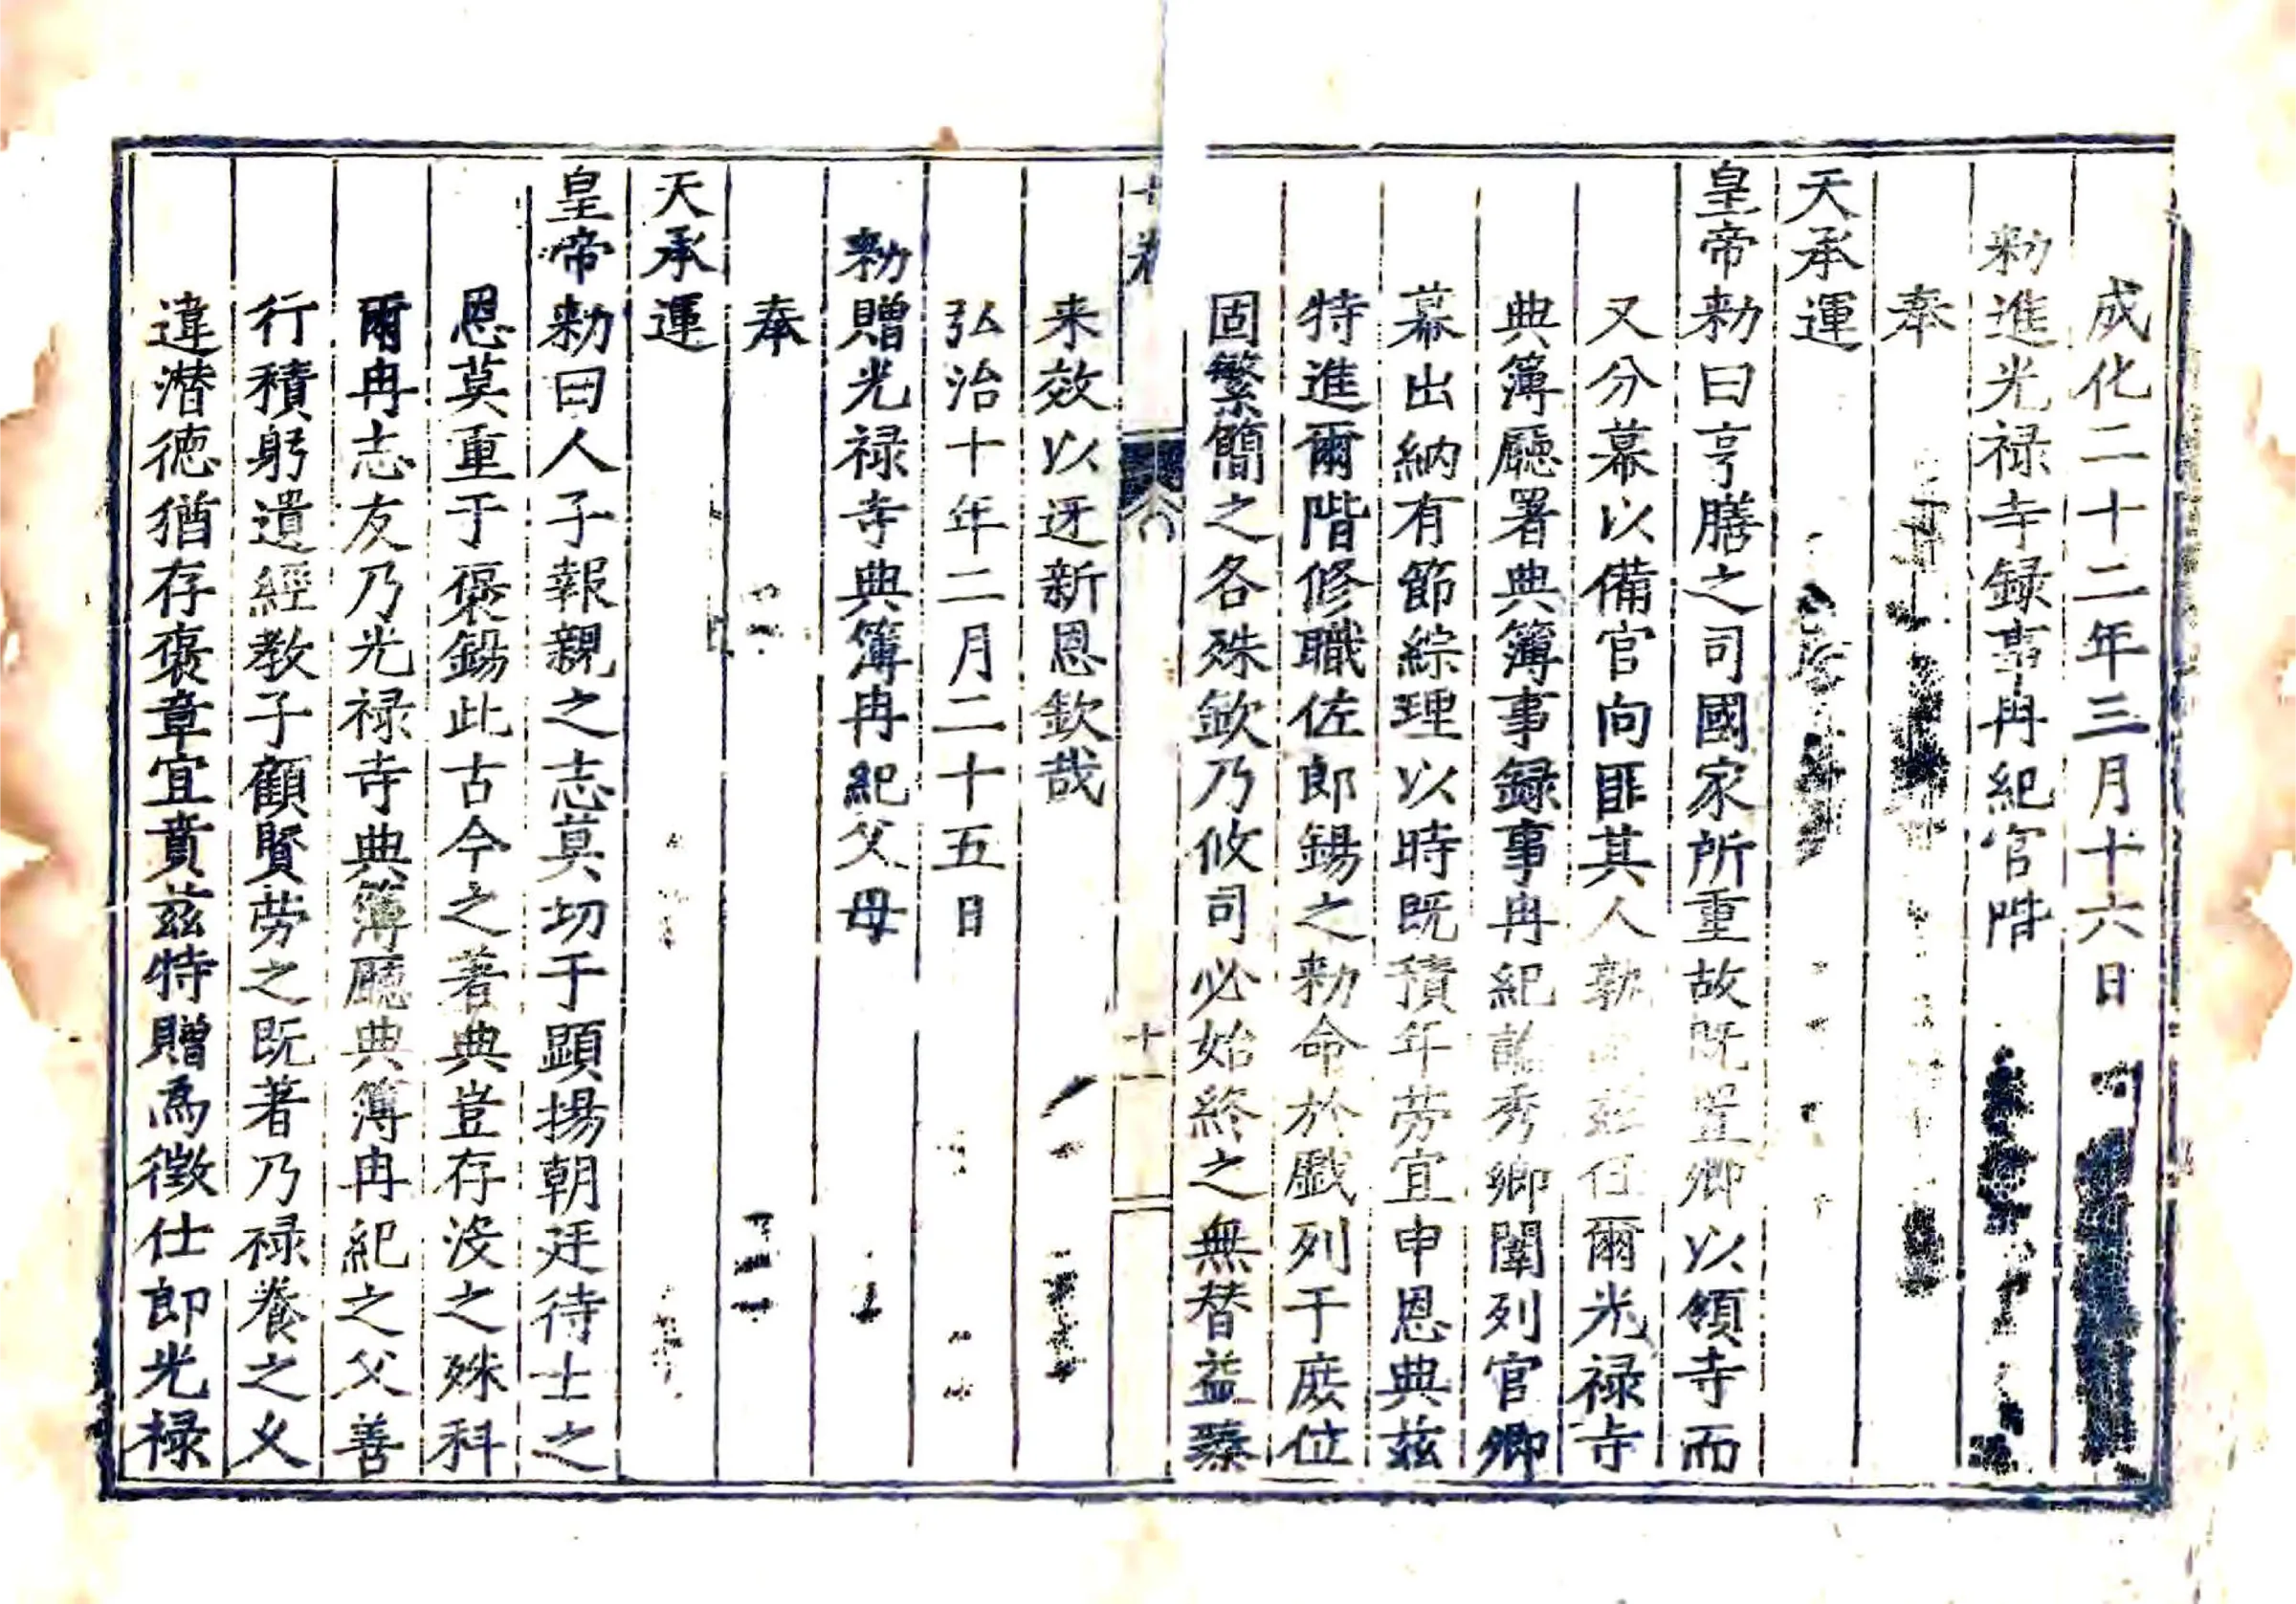 成化二十二年三月十六日
勑進光禄寺録事冉紀官階
奉
天承運
皇帝勑曰亨膳之司國家所重故既置卿以領寺而
又分幕以備官向匪其人孰茲任爾光禄寺
典簿廳署典簿事録事冉紀秀卿闈列官卿
幕出納有節綜理以時既積年劳宜申恩典茲
特進爾階修職佐郎錫之勑命於戲列于庶位
固繁簡之各殊欽乃攸司必始終之無替益臻
来效以迓新恩欽哉
十一
弘治十年二月二十五日
勑贈光禄寺典簿冉紀父母
奉
天承運
皇帝勑曰人子報親之志莫切于顕揚朝廷待士之
恩莫重于褒錫此古今之著典豈存没之殊科
爾冉志友乃光禄寺典簿廳典簿冉紀之父善
行積躬遺經教子顧賢劳之既著乃禄養之乂
違潜徳猶存褒章宜賁茲特贈為徴仕郎光禄